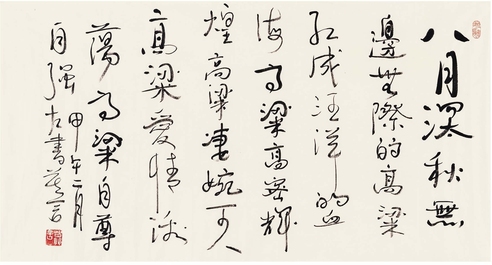 八月深秋無
邊無際的高粱
紅成汪洋的血
海高粱高密輝
煌高粱凄婉可人
高粱愛情激
蕩高粱自尊
自强
甲午二月
左書莫言